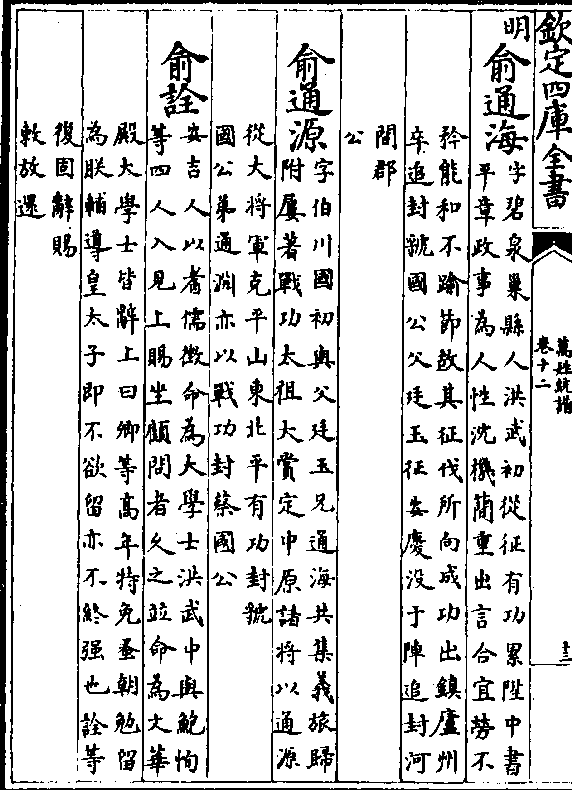 欽定四庫全書
萬姓統譜
卷十二
十三
明
俞通海
字碧泉巢縣人洪武初從征有功累陞中書
平章政事為人性沈機蕳重出言合宜勞不
矜能和不踰節故其征伐所向成功出鎮廬州
卒追封虢國公父廷玉征安慶没于陣追封河
間郡
公
俞通源
字伯川國初與父廷玉兄通海共集義旅歸
附屢著戰功太祖大賞定中原諸將以通源
從大將軍克平山東北平有功封虢
國公弟通淵亦以戰功封蔡國公
俞詮
安吉人以耆儒徴命為大學士洪武中與鮑恂
等四人入見上賜坐顧問者久之竝命為文華
殿大學士皆辭上曰卿等髙年特免蚤朝勉留
為朕輔導皇太子即不欲留亦不終强也詮等
復固辭賜
敕放還